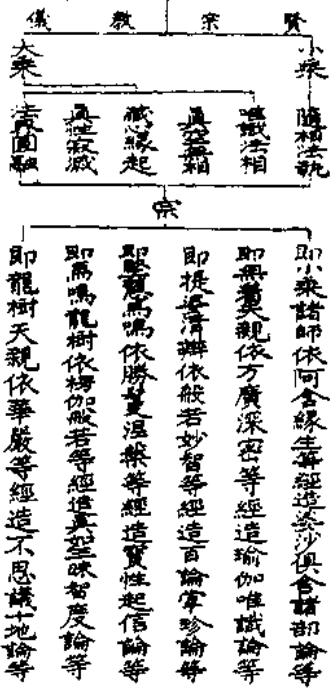 賢宗教儀
小乘
大乘
隨相法執
唯識法相
眞空無相
藏心緣起
眞性寂滅
法界圓融
宗
即小乘諸師依阿含緣生等經造婆沙俱舍諸部論等
即無著天親依方廣深密等經造瑜伽唯識論等
即提婆清辨依般若妙智等經造百論掌珍論等
即堅慧馬鳴依勝鬘涅槃等經造寶性起信論等
即馬鳴龍樹依楞伽般若等經造眞如三昧智度論等
即龍樹天親依華嚴等經造不思議十地論等